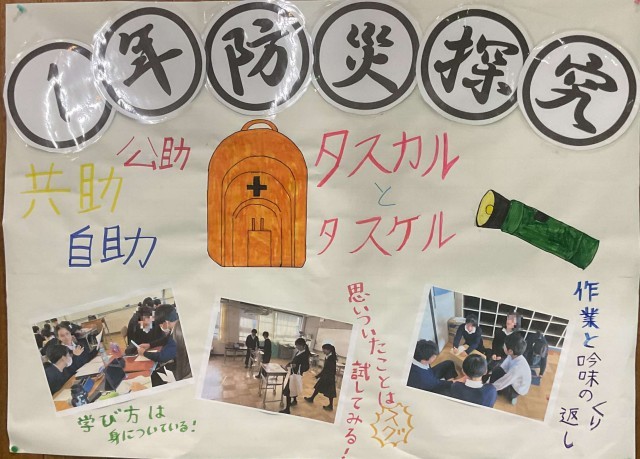 1年防災探究
公助
共助
自助
タスカル
と
タスケル
学び方は
身についている!
思いついたことは
試してみる!
イグッ
作業と
吟味の
くり
返し